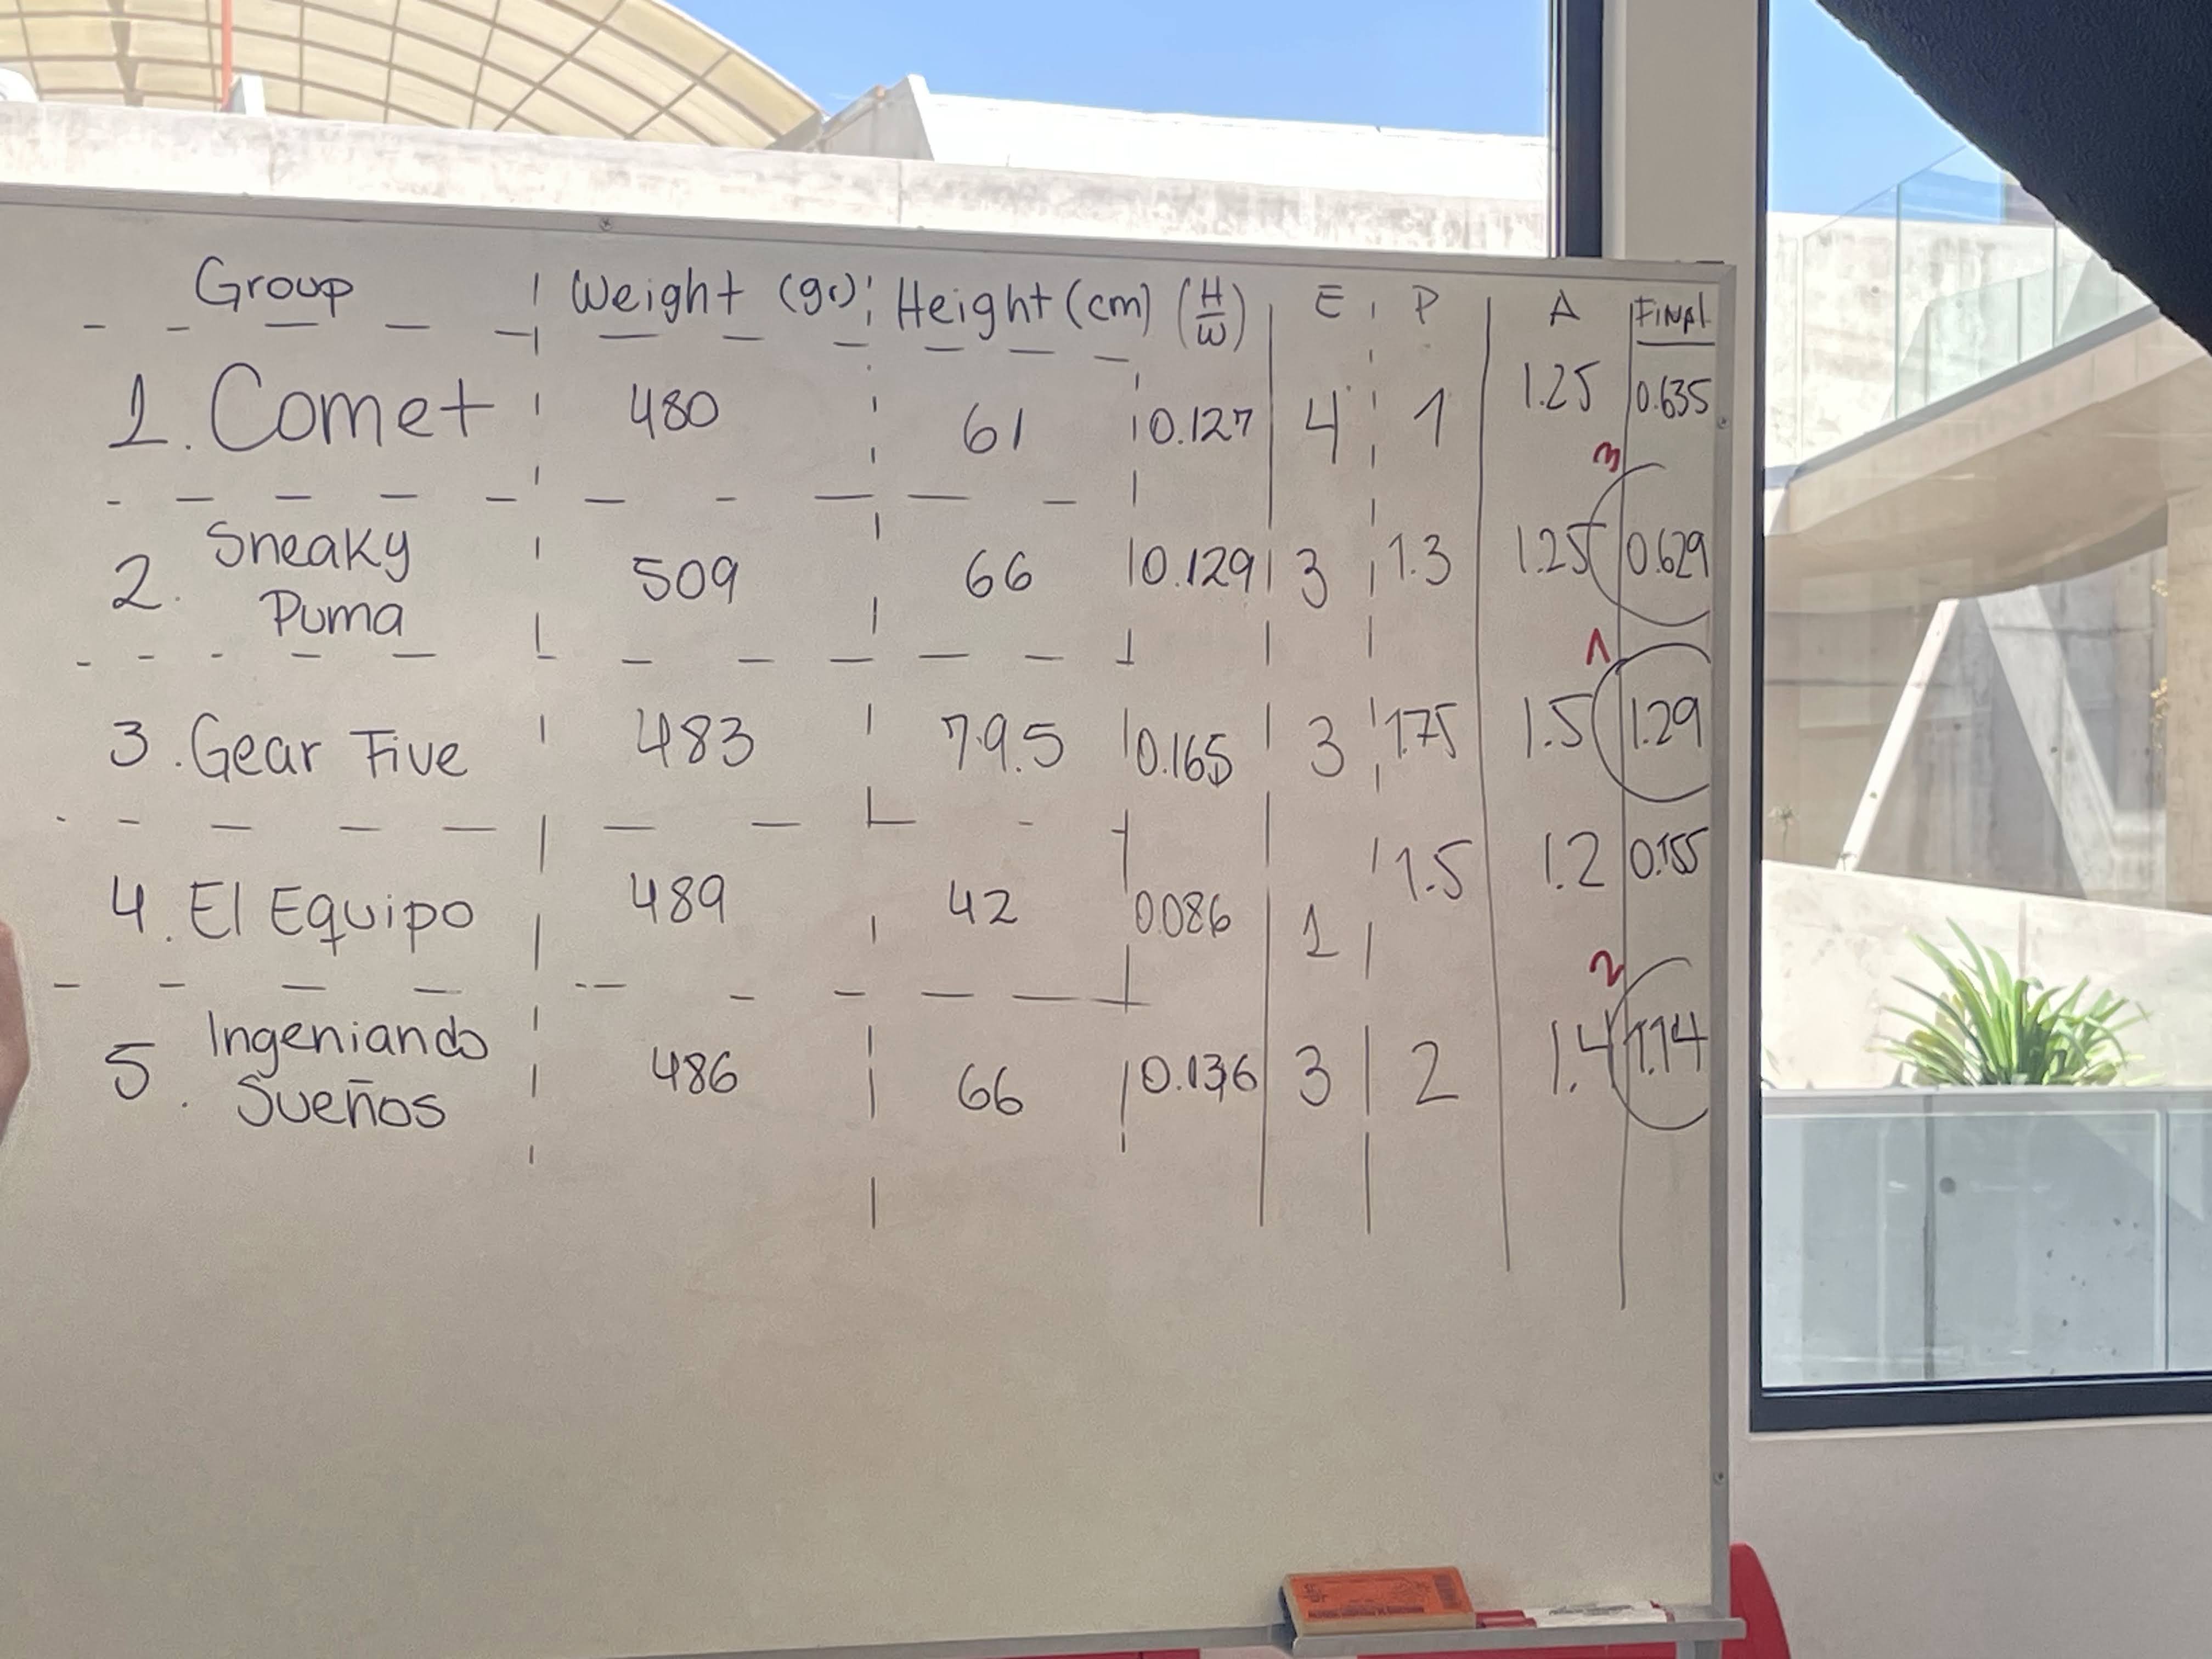 Group Weight (gr) Height (cm) (H/W) E P A FINAL
1. Comet 480 61 0.127 4 1 1.25 0.635
3
2. Sneaky Puma 509 66 0.129 3 1.3 1.25 0.629
1
3. Gear Five 483 79.5 0.165 3 1.75 1.5 1.29
4. El Equipo 489 42 0.086 1 1.5 1.2 0.155
2
5. Ingeniando Sueños 486 66 0.136 3 2 1.4 1.14